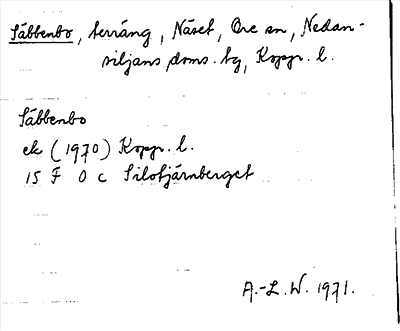 Säbbenbo, terräng, Näset, Ore sn, Nedan-
siljans doms. tg, Kopp. l.
Säbbenbo
ek (1970) Kopp. l.
15 F 0 c Silotjärnberget
A.-L. W. 1971.